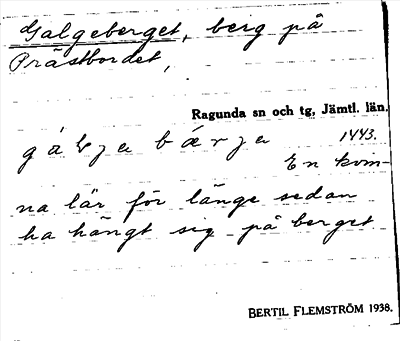 Galgeberget, berg på
Prästbordet,
Ragunda sn och tg, Jämtl. län.
1443.
En kvin-
na lär för länge sedan
ha hängt sig på berget
BERTIL FLEMSTRÖM 1938.